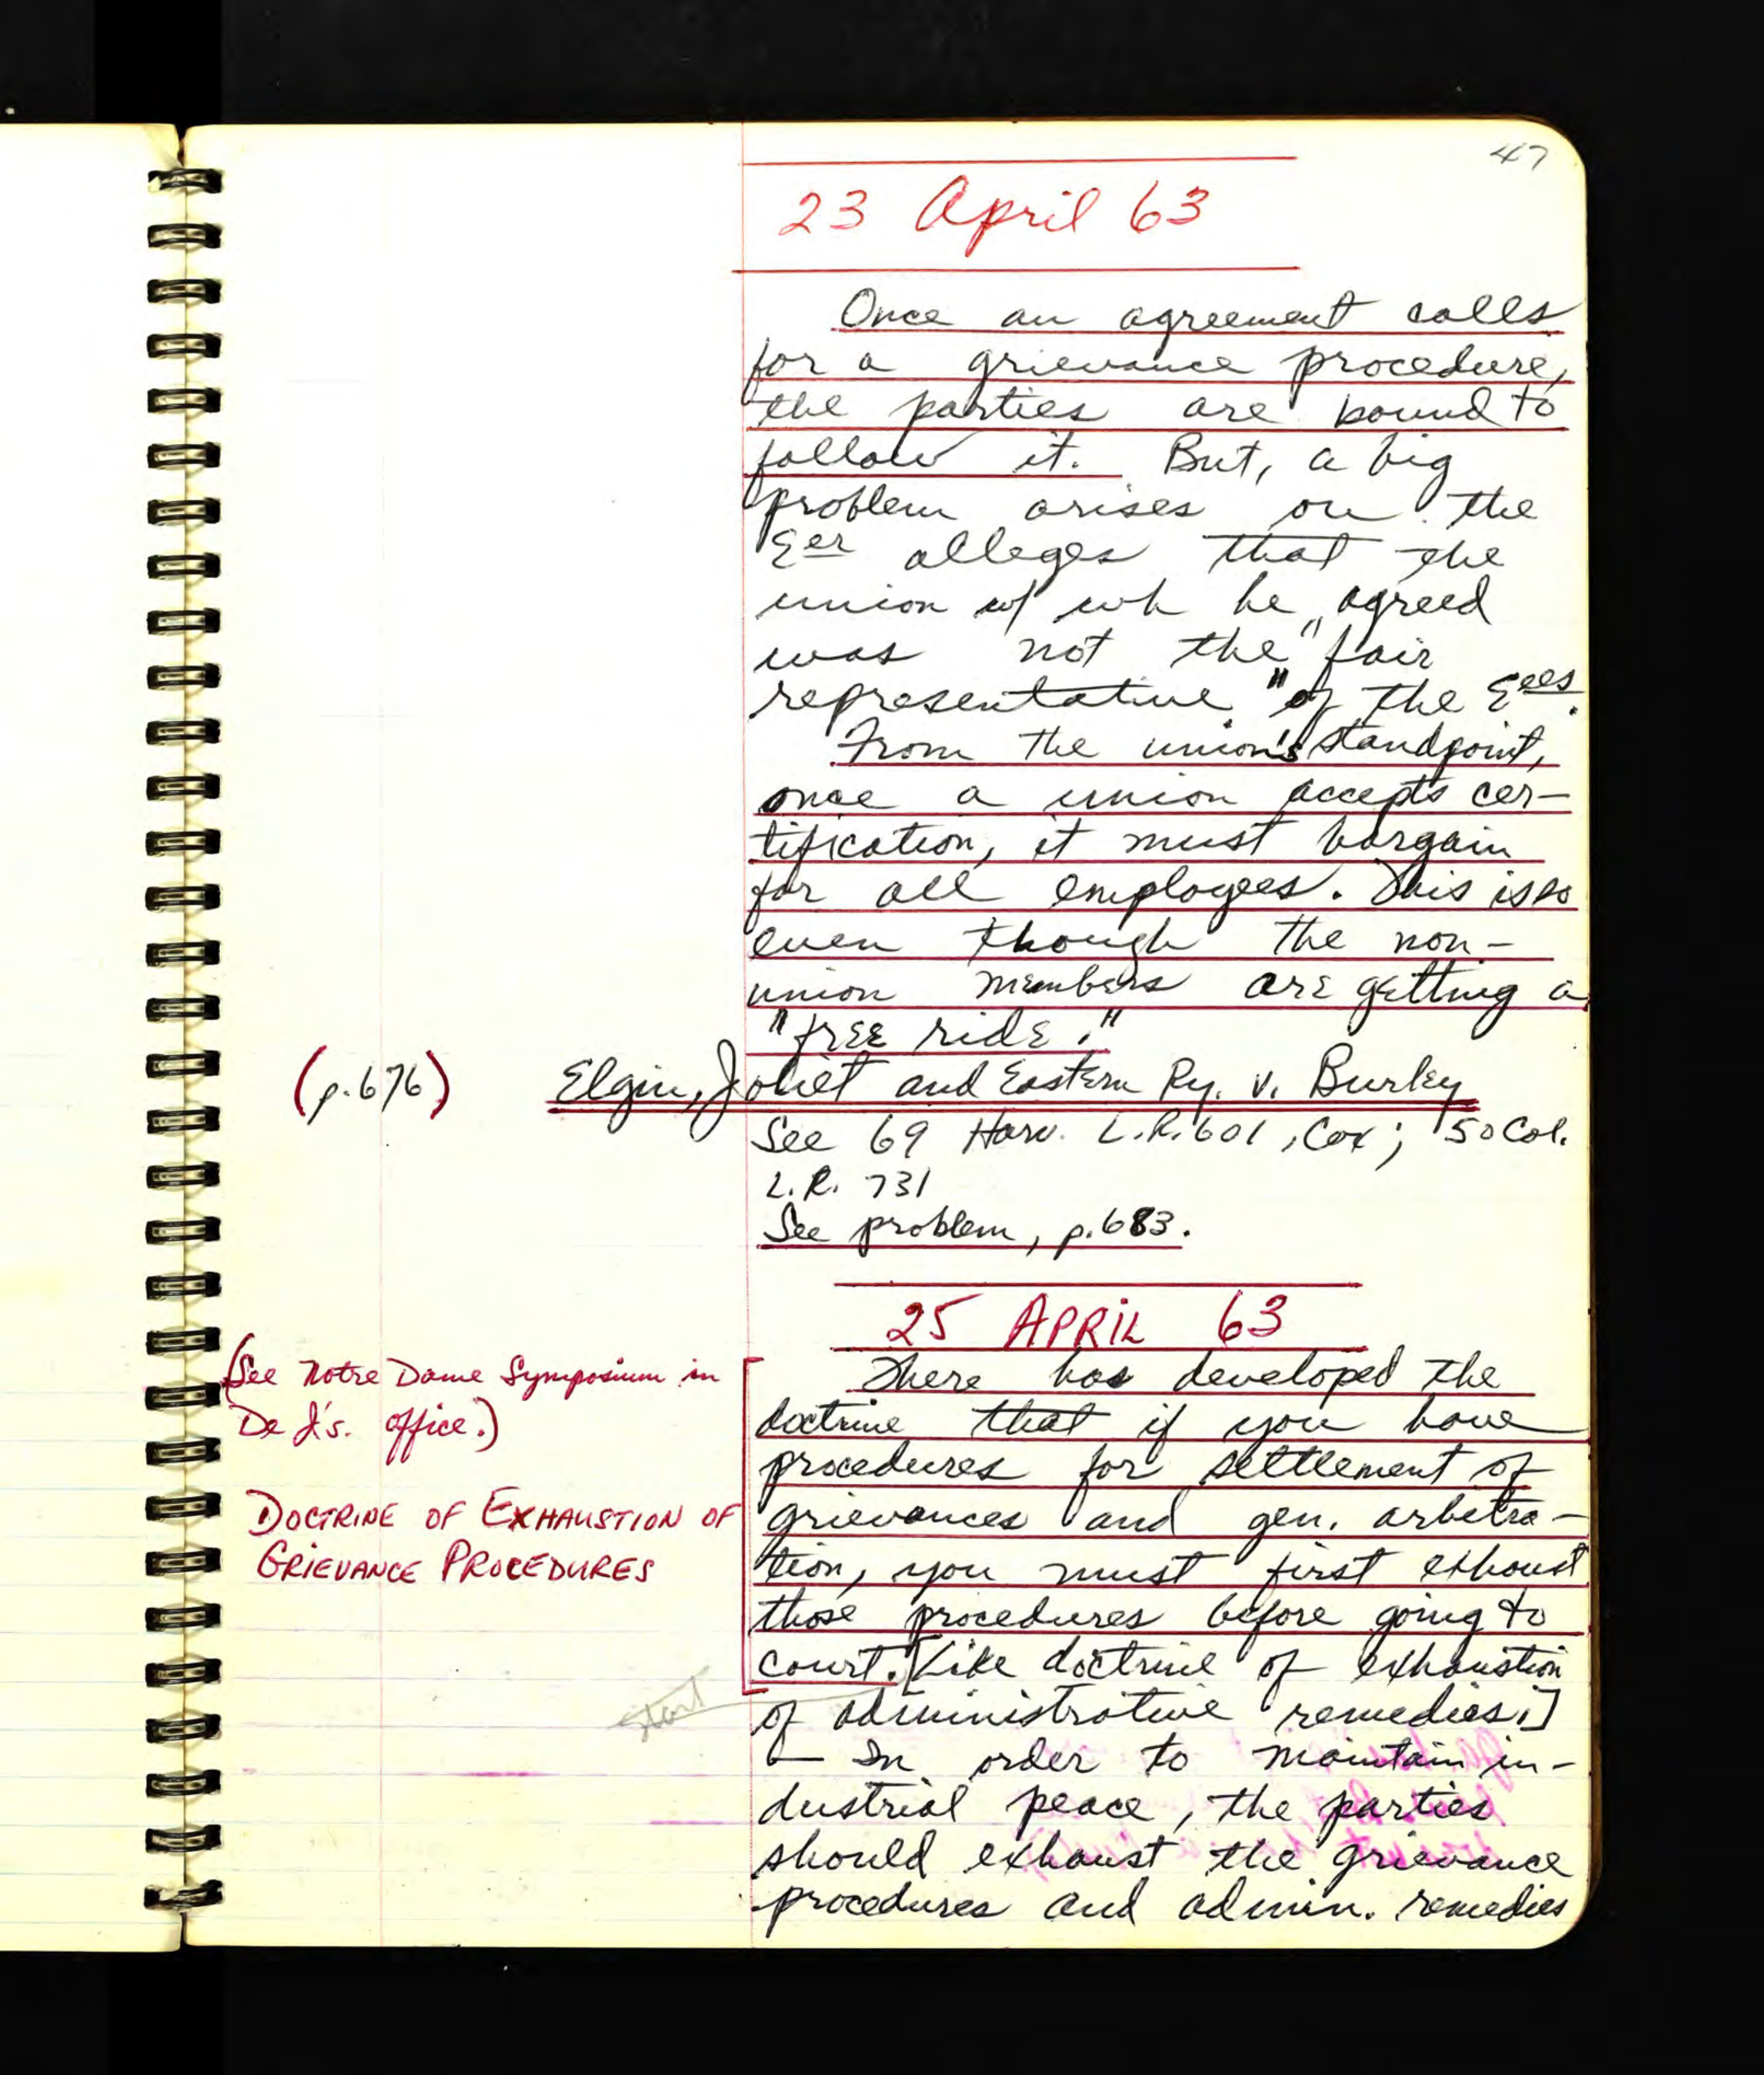 47
23 April 63
Once an agreement calls
for a grievance procedure,
the parties are bound to
follow it. But, a big
problem arises on the
Eer alleges that the
union w/ wh he agreed
was not the "fair
representative" of the Eees.
From the union's standpoint,
once a union accepts cer-
tification, it must bargain
for all employees. This is so
even though the non-
union members are getting a
"free ride."
(p.676) Elgin, Joliet and Eastern Ry. v. Burley
See 69 Harv. L.R. 601, Cox; 50 Col.
L.R. 731
See problem, p. 683.
25 APRIL 63
(See Notre Dame Symposium in
De J's. office.)
DOCTRINE OF EXHAUSTION OF
GRIEVANCE PROCEDURES
There has developed the
doctrine that if you have
procedures for settlement of
grievances and gen. arbitra-
tion, you must first exhaust
those procedures before going to
court. [Like doctrine of exhaustion
of administrative remedies.]
start
In order to maintain in-
dustrial peace, the parties
should exhaust the grievance
procedures and admin. remedies